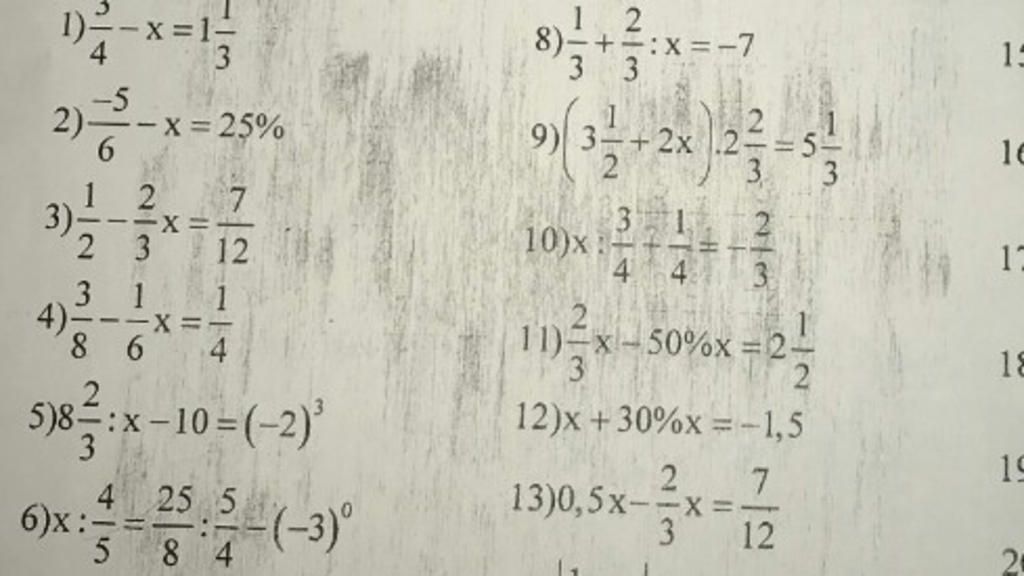 1) 3/4 − x = 1 1/3
2) −5/6 − x = 25%
3) 1/2 − 2/3 x = 7/12
4) 3/8 − 1/6 x = 1/4
5) 8 2/3 : x − 10 = (−2)³
6) x : 4/5 = 25/8 : 5/4 − (−3)⁰
8) 1/3 + 2/3 : x = −7
9) (3 1/2 + 2x) . 2 2/3 = 5 1/3
10) x : 3/4 − 1/4 = − 2/3
11) 2/3 x − 50%x = 2 1/2
12) x + 30%x = −1,5
13) 0,5x − 2/3 x = 7/12
16
18